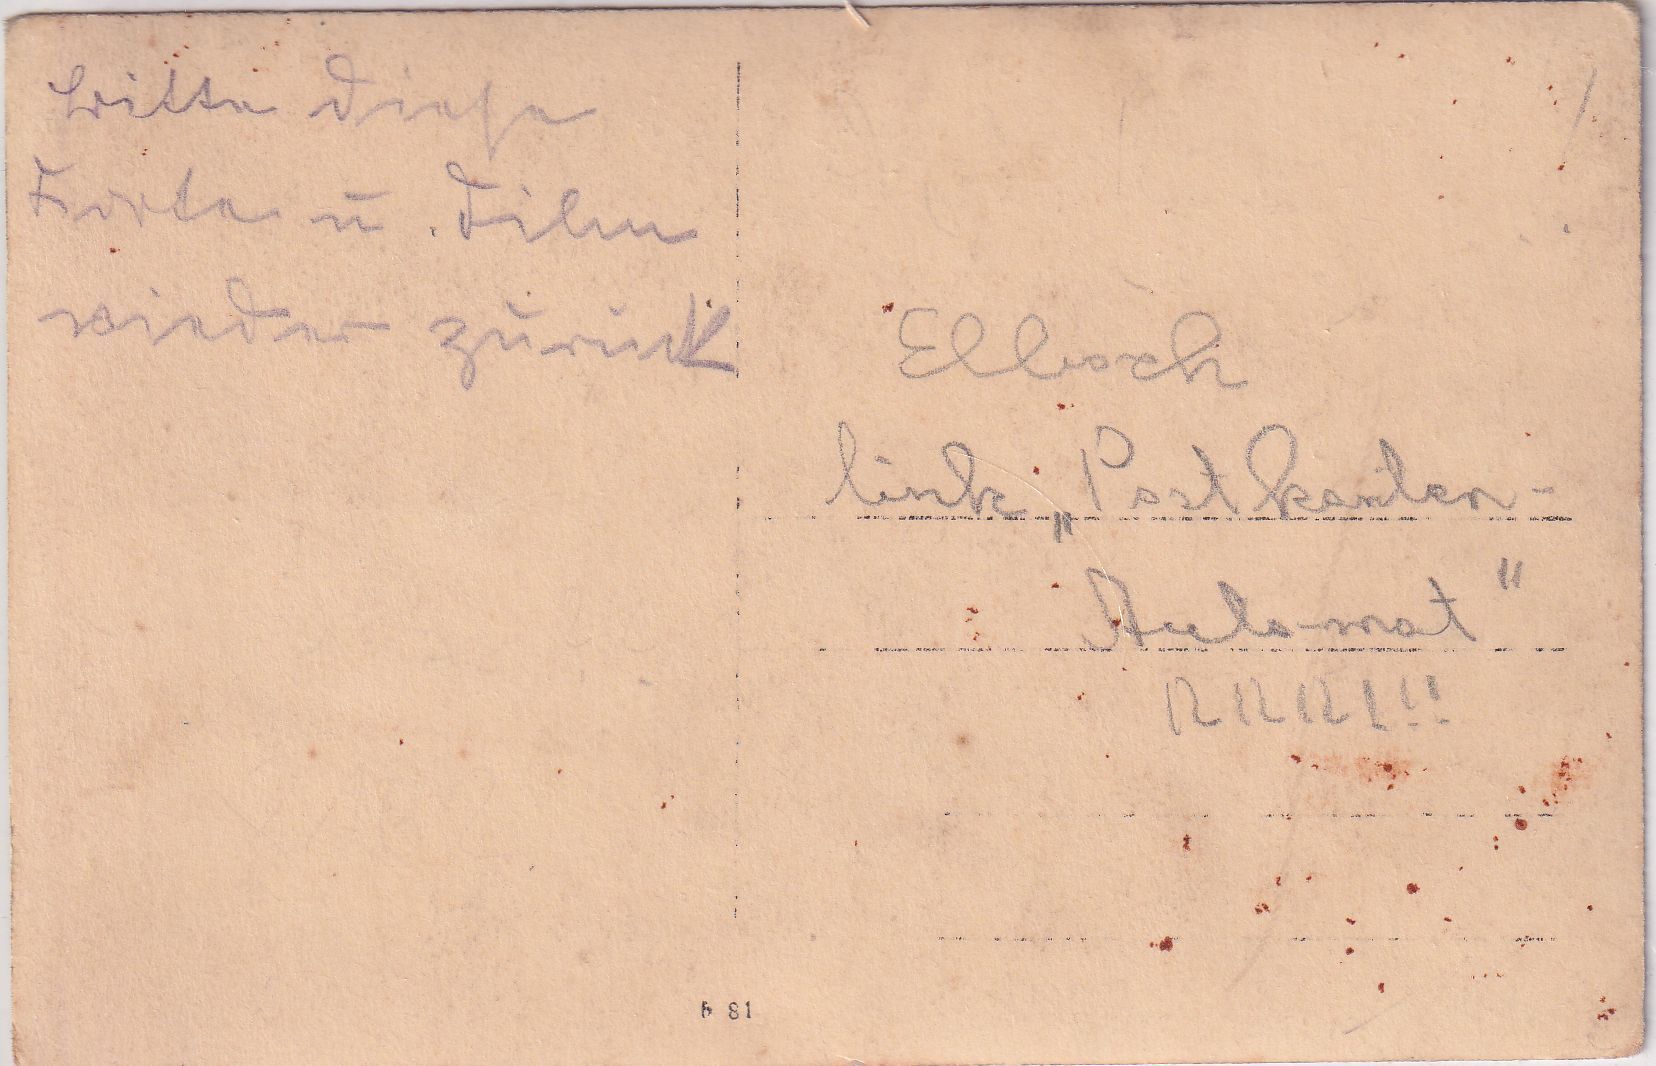 bitte diese
Karte u. Film
wieder zurück
Elbsch
link „Postkarten-
Automat"
!!!
b 81